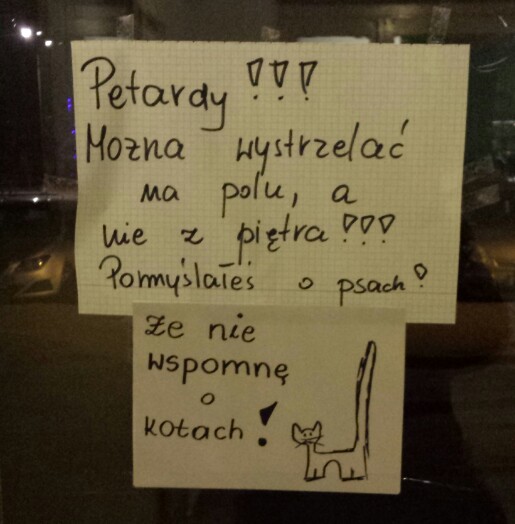 Petardy !!!
Mozna wystrzelać
na polu, a
nie z piętra!!!
Pomyślałeś o psach!
Że nie
wspomnę
o
kotach!